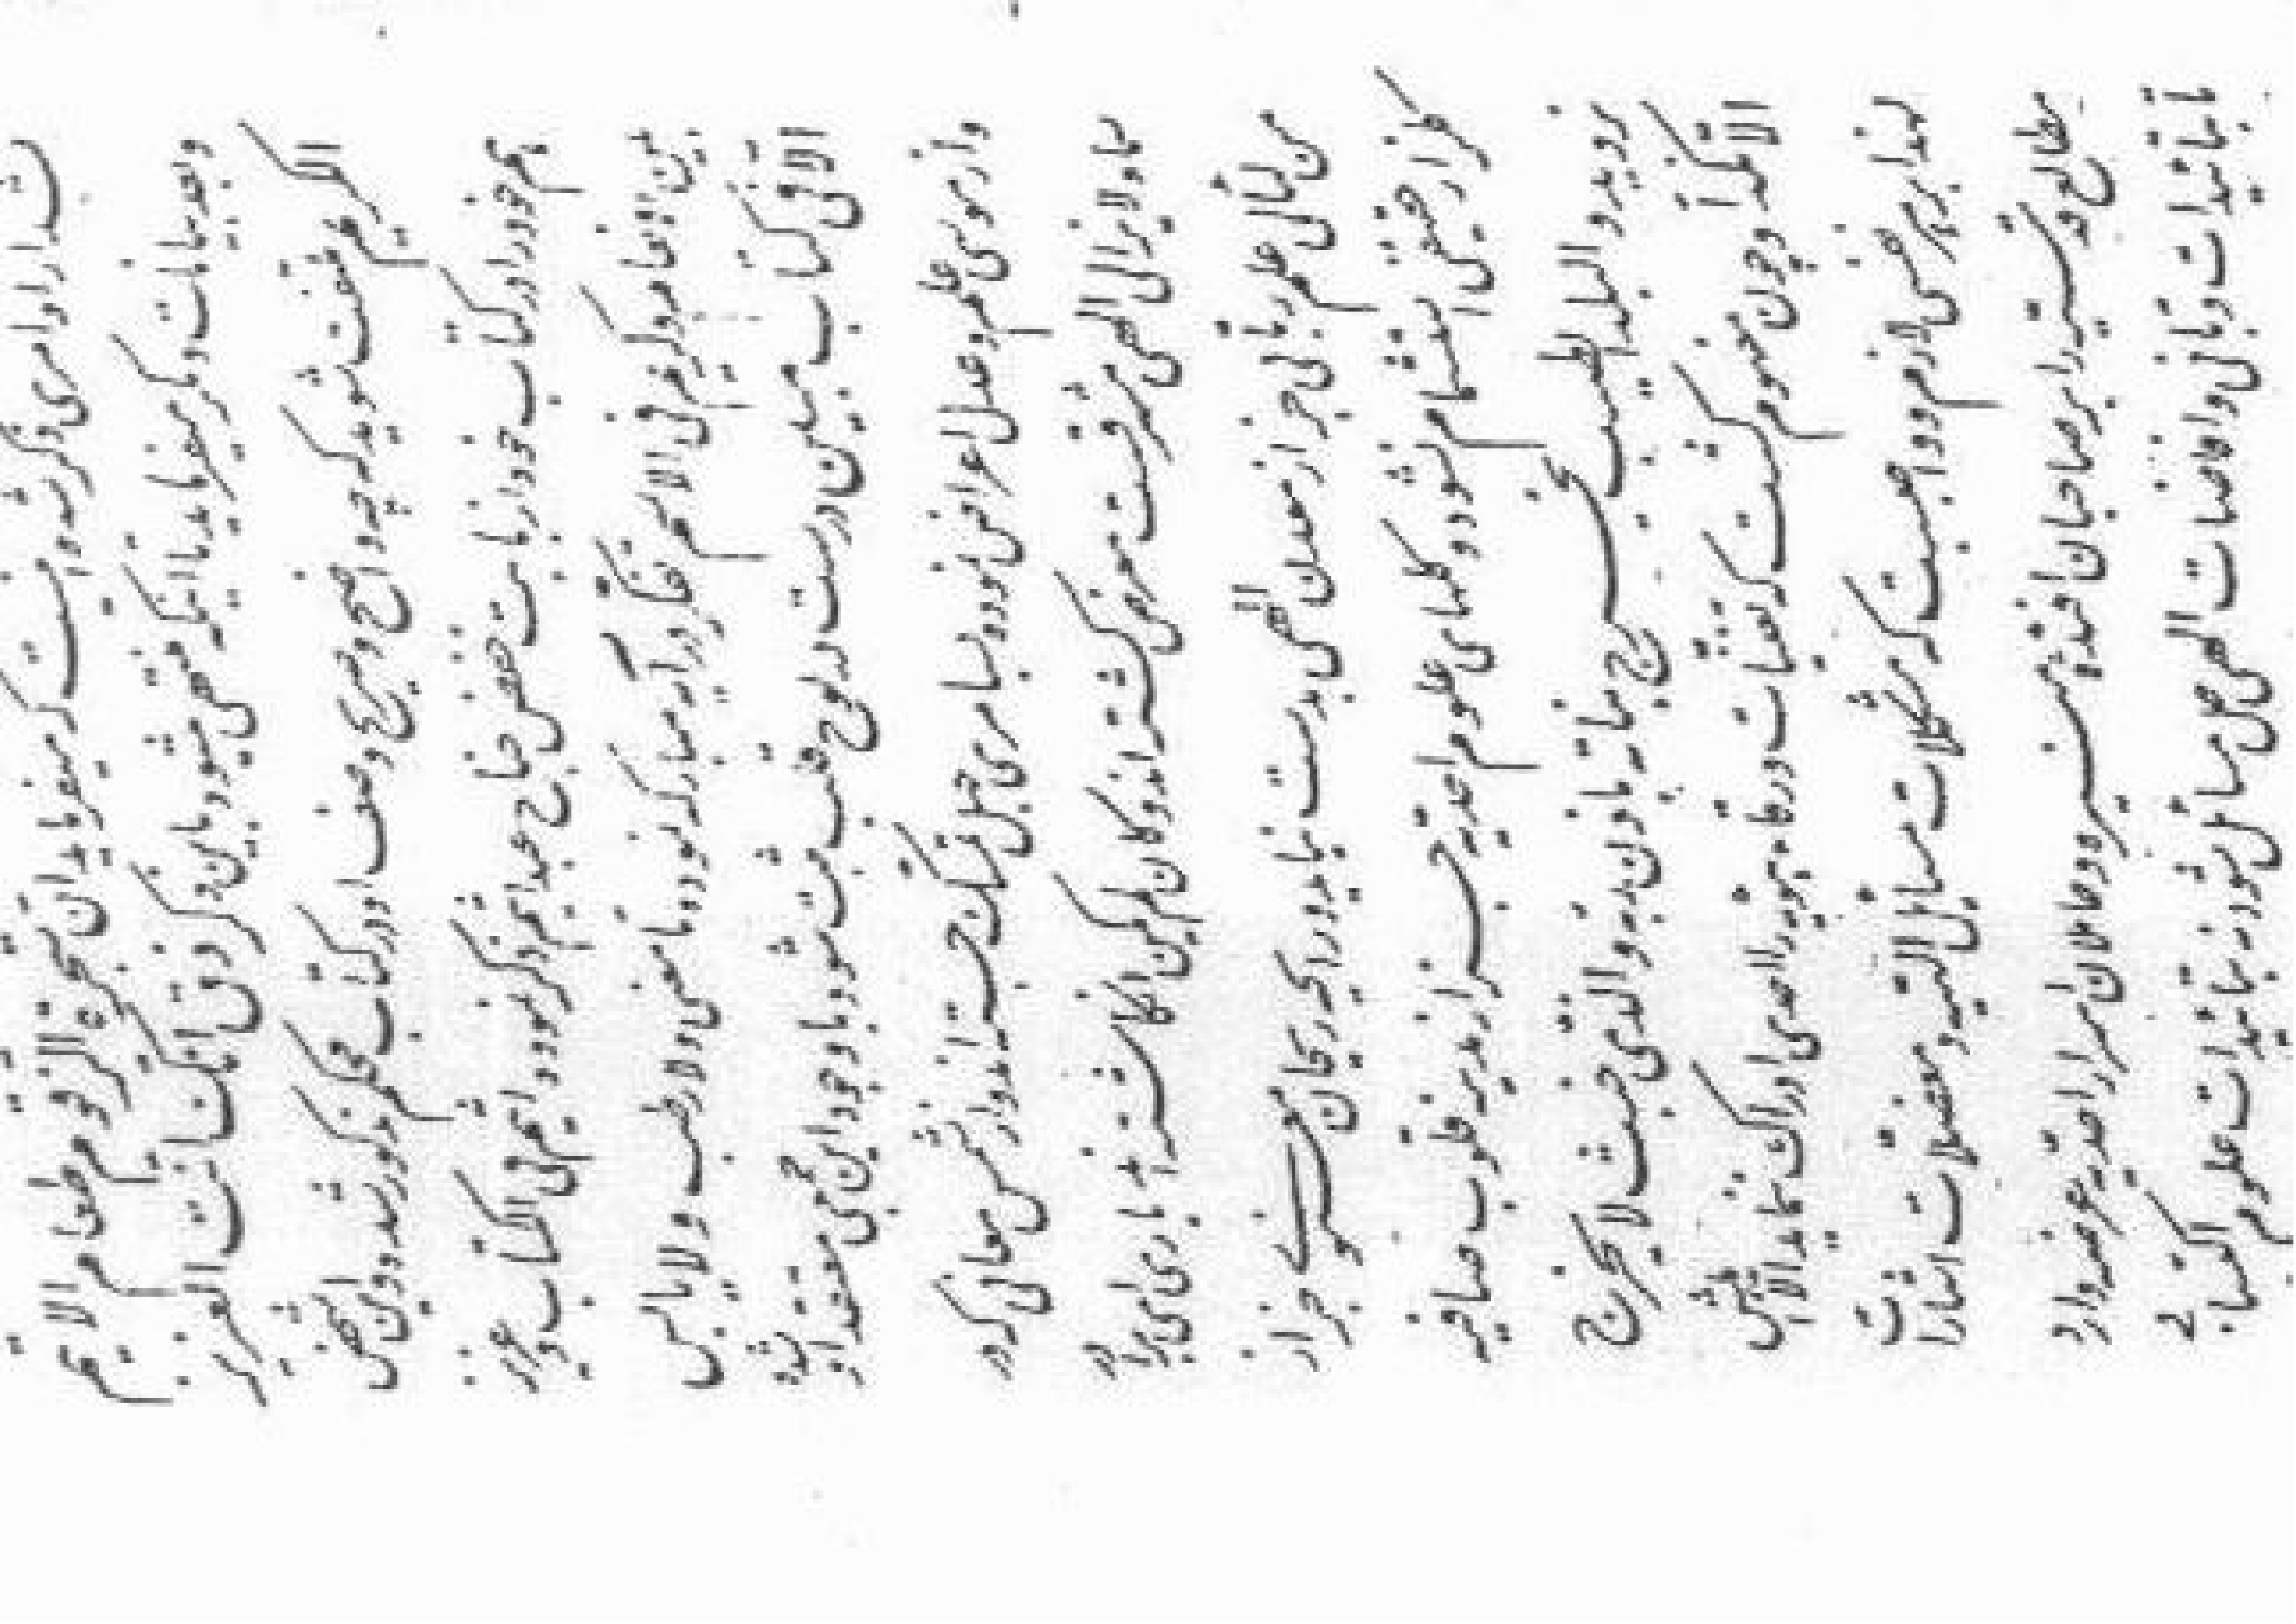 ذکر شده و اینست که میفرماید ان شجرة الزقوم طعام الاثیم
و بعد بیانات دیگر میفرماید تا اینکه منتهی میشود باین ذکر ذق انک انت العزیز
الکریم ملتفت شوید که چه واضح و صریح وصف او در کتاب محکم مذکور شده و این شخص
هم خود را در کتاب خود از بابت خفض جناح عبد اثیم ذکر نموده اثیم فی الکتاب و عزیز
بین الانعام و کریم فی الاسم تفکر در آیه مبارکه نموده تا معنی و لا رطب و لا یابس
الا فی کتاب مبین درست در لوح قلب ثبت شود با وجود این جمعی معتقد او شده
و از موسی علم و عدل اعراض نموده و بسامری جهل تمسک جسته‌اند و از شمس معانی که در
سماء لایزالی الهی مشرقست معرض گشته‌اند و کان لم یکن انگاشته‌اند باری ای برادر
من لئالی علم ربانی جز از معدن الهی بدست نیاید و رایحه ریحان معنوی جز از
گلزار حقیقی استشمام نشود و گلهای علوم احدیه جز در مدینه قلوب صافیه
نروید و البلد الطیب یخرج نباته باذن ربه و الذی خبث لا یخرج
الا نکدا و چون مفهوم گشت که تغنیات ورقاء هویه را احدی ادراک ننماید الا اهلش
لهذا بر هر نفسی لازم و واجبست که مشکلات مسائل الهیه و معضلات اشارات
مطالع قدسیه را بر صاحبان افئده منیره و حاملان اسرار احدیه عرضه دارد
تا بتأییدات ربانی و افاضات الهی حل مسائل شود نه بتأییدات علوم اکتسابی